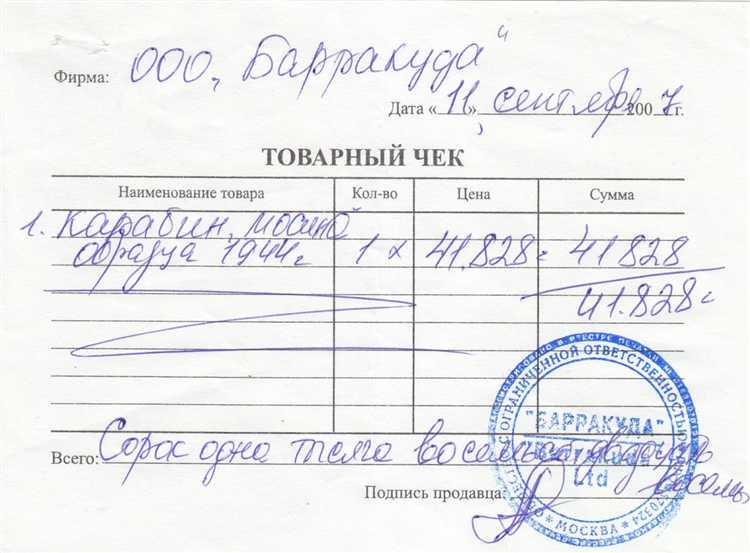 Фирма: ООО „Барракуда"
Дата «11», сентября 2007г.
ТОВАРНЫЙ ЧЕК
Наименование товара Кол-во Цена Сумма
1. Карабин
образца 1944г 1 x 41.828= 41828
41.828=
Всего: Сорок одна восемьсот двадцать
восемь
Подпись продавца:
ОГРАНИЧЕННОЙ ОТВЕТСТВЕННОСТЬЮ
"БАРРАКУДА"
"Barrakuda"
Ltd
* МОСКВА *